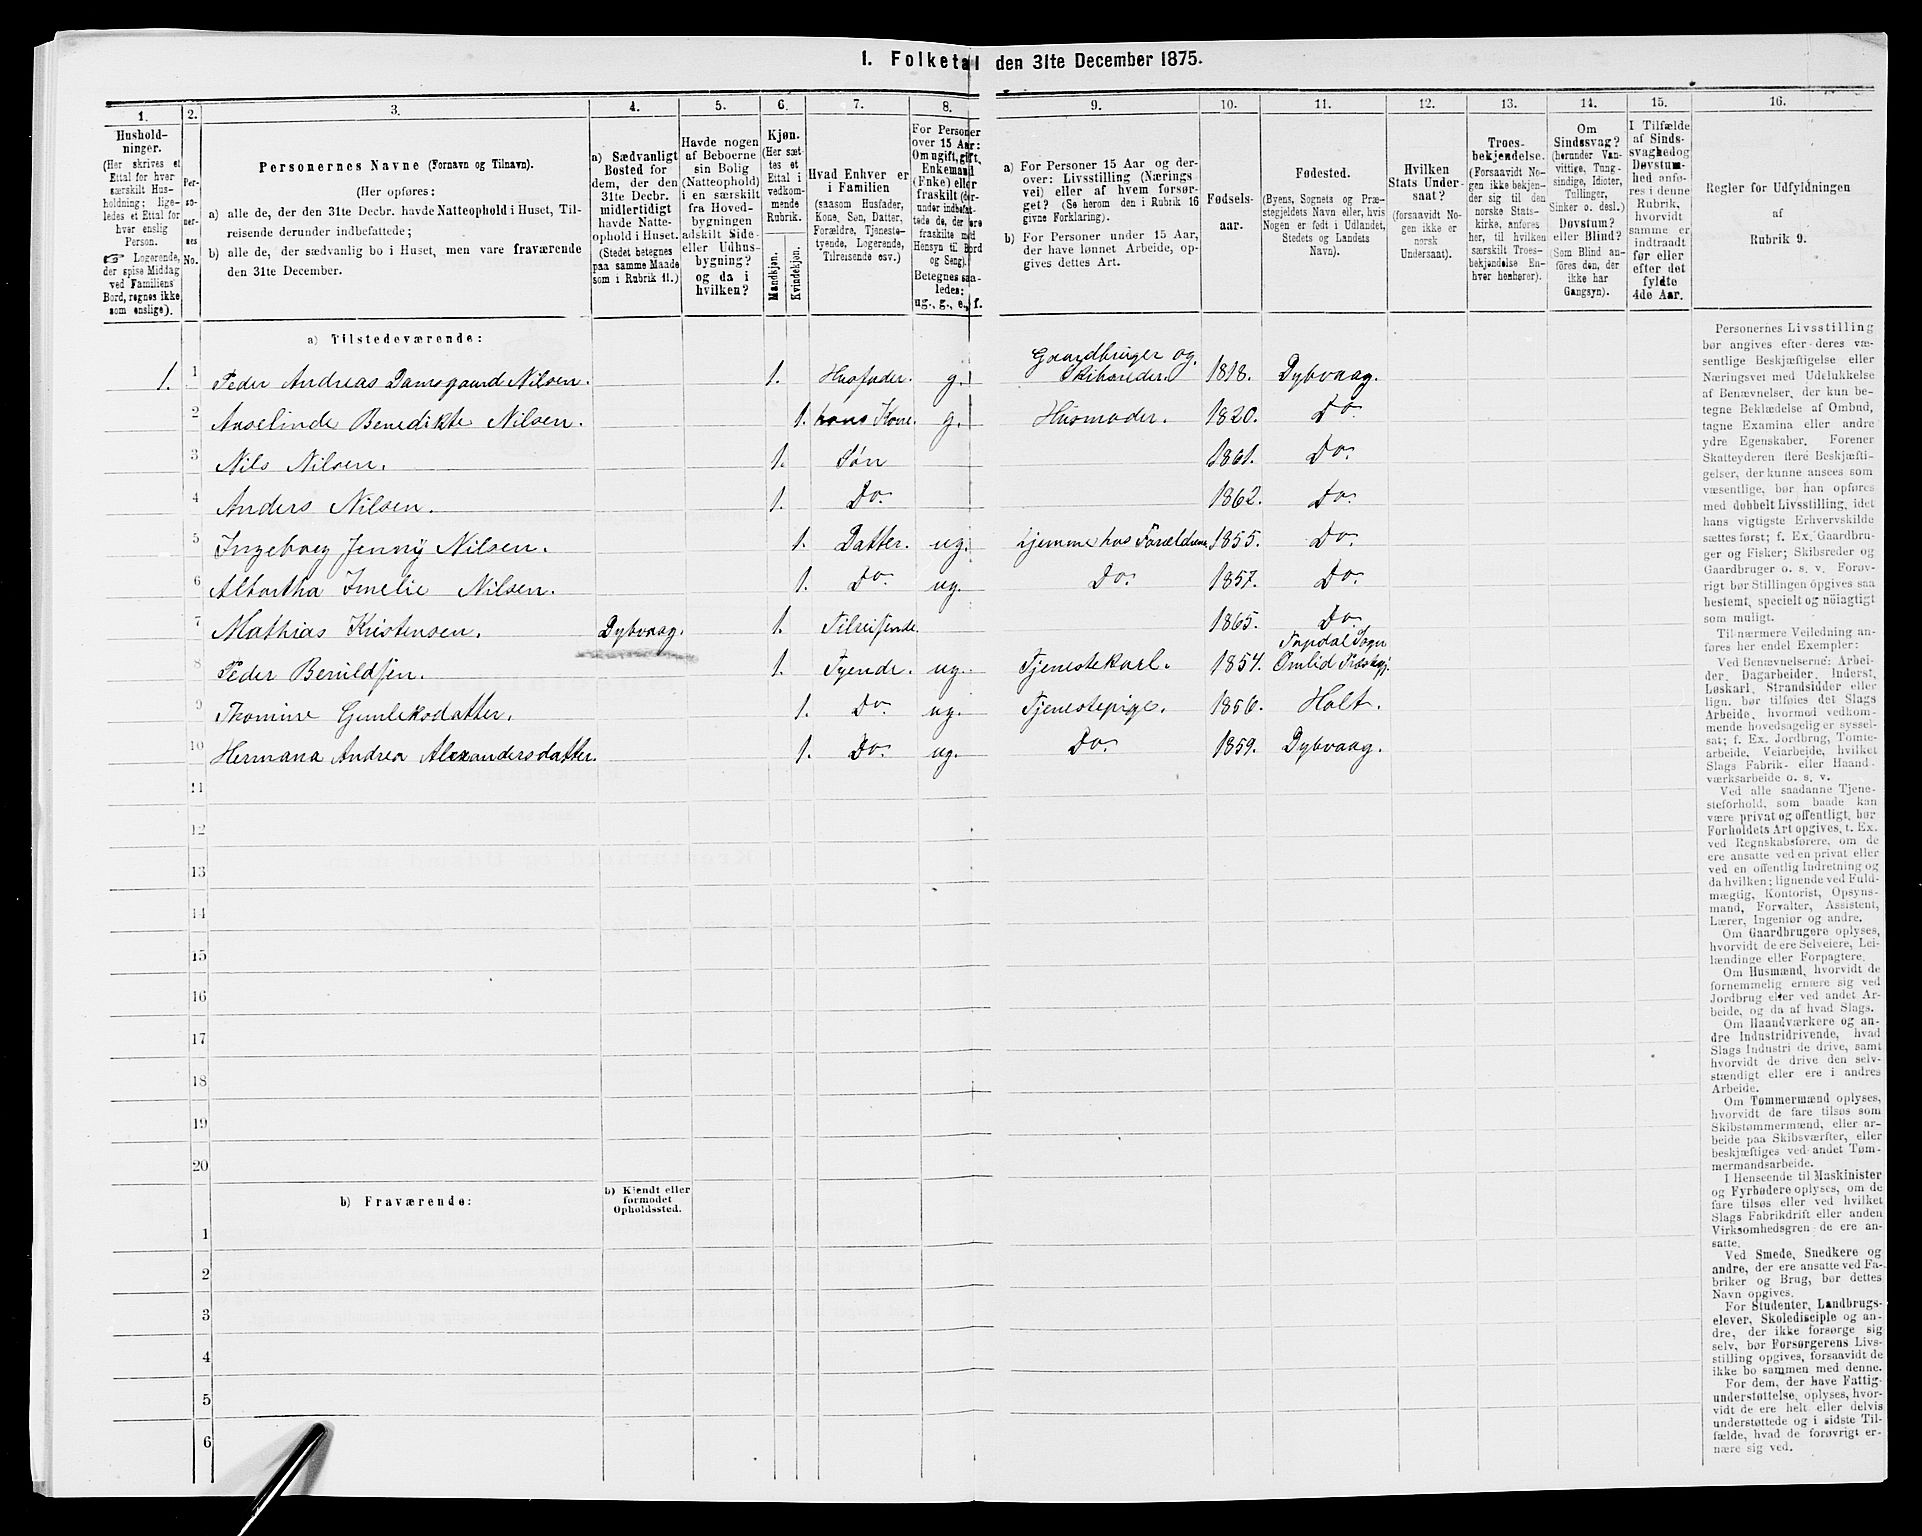 1. Folketal den 31te December 1875.
1.
2.
3.
4.
5.
6.
7.
8.
9.
10.
11.
12.
13.
14.
15.
16.
Hushold-
ninger.
(Her skrives et
Ettal for hver
særskilt Hus-
holdning; lige-
ledes et Ettal for
hver enslig
Person.
☞ Logerende,
der spise Middag
ved Familiens
Bord, regnes ikke
som enslige).
Per-
so-
ner-
nes
No.
Personernes Navne (Fornavn og Tilnavn).
(Her opføres:
a) alle de, der den 31te Decbr. havde Natteophold i Huset, Til-
reisende derunder indbefattede;
b) alle de, der sædvanlig bo i Huset, men vare fraværende
den 31te December.
a) Sædvanligt
Bosted for
dem, der den
31te Decbr.
midlertidigt
havde Natte-
ophold i Huset.
(Stedet betegnes
paa samme Maade
som i Rubrik 11.)
Havde nogen
af Beboerne
sin Bolig
(Natteophold)
i en særskilt
fra Hoved-
bygningen
adskilt Side-
eller Udhus-
bygning?
og da i
hvilken?
Kjøn.
(Her sæt-
tes et
Ettal i
vedkom-
mende
Rubrik.
Mandkjøn.
Kvindekjøn.
Hvad Enhver er
i Familien
(saasom Husfader,
Kone, Søn, Datter,
Forældre, Tjeneste-
tyende, Logerende,
Tilreisende osv.)
For Personer
over 15 Aar:
Om ugift, gift,
Enkemand
(Enke) eller
fraskilt (der-
under indbefat-
tede de, der ere
fraskilte med
Hensyn til Bord
og Seng).
Betegnes saa-
ledes:
ug., g., e., f.
a) For Personer 15 Aar og der-
over: Livsstilling (Nærings
vei) eller af hvem forsør-
get? (Se herom den i Rubrik 16
givne Forklaring).
b) For Personer under 15 Aar,
der have lønnet Arbeide, op-
gives dettes Art.
Fødsels-
aar.
Fødested.
(Byens, Sognets og Præ-
stegjeldets Navn eller, hvis
Nogen er født i Udlandet,
Stedets og Landets
Navn).
Hvilken
Stats Under-
saat?
(forsaavidt No-
gen ikke er
norsk
Undersaat).
Troes-
bekjendelse.
(Forsaavidt No-
gen ikke bekjen-
der sig til den
norske Stats-
kirke, anføres
her, til hvilken
særskilt Troes-
bekjendelse En-
hver henhører).
Om
Sindssvag?
(herunder Van-
vittige, Tung-
sindige, Idioter,
Tullinger,
Sinker o. desl.)
Døvstum?
eller Blind?
(Som Blind an-
føres den, der
ikke har
Gangsyn).
I Tilfælde
af Sinds-
svaghed og
Døvstum-
hed anfø-
res i denne
Rubrik,
hvorvidt
samme er
indtraadt
før eller
efter det
fyldte
4de Aar.
Regler for Udfyldningen
af
Rubrik 9.
a) Tilstedeværende:
1. 1 Peder Andreas Damsgaard Nilsen. 1. Husfader. g. Gaardbruger og Skibsreder. 1818. Dybvaag.
2 Anselinde Benedikte Nilsen. 1. hans Kone. g. Husmoder. 1820. Do
3 Nils Nilsen. 1. Søn 1861. Do.
4 Anders Nilsen. 1. Do. 1862. Do.
5 Ingeborg Jenny Nilsen. 1. Datter. ug. hjemme hos Forældrene 1855. Do.
6 Albertha Imelie Nilsen. 1. Do. ug. Do. 1857. Do.
7 Mathias Kristensen. Dybvaag. 1. Tilreisende. 1865. Do.
8 Peder Benildsen. 1. Tyende. ug. Tjenestekarl. 1854. Topdal Sogn Omlid Præstegj.
9 Thomine Gunleksdatter. 1. Do. ug. Tjenestepige. 1856. Holt.
10 Hermana Andrea Alexandersdatter. 1. Do. ug. Do. 1859. Dybvaag.
11
12
13
14
15
16
17
18
19
20
b) Fraværende:
b) Kjendt eller
formodet
Opholdssted.
1
2
3
4
5
6
Personernes Livsstilling
bør angives efter deres væ-
sentlige Beskjæftigelse eller
Næringsvei med Udelukkelse
af Benævnelser, der kun be-
tegne Beklædelse af Ombud,
tagne Examina eller andre
ydre Egenskaber. Forener
Skatteyderen flere Beskjæfti-
gelser, der kunne ansees som
væsentlige, bør han opføres
med dobbelt Livsstilling, idet
hans vigtigste Erhvervskilde
sættes først; f. Ex. Gaardbru-
ger og Fisker; Skibsreder og
Gaardbruger o. s. v. Forøv-
rigt bør Stillingen opgives saa
bestemt, specielt og nøiagtigt
som muligt.
Til nærmere Veiledning an-
føres her endel Exempler:
Ved Benævnelserne: Arbei-
der, Dagarbeider, Inderst,
Løskarl, Strandsidder eller
lign. bør tilføies det Slags
Arbeide, hvormed vedkom-
mende hovedsagelig er syssel-
sat; f. Ex. Jordbrug, Tomte-
arbeide, Veiarbeide, hvilket
Slags Fabrik- eller Haand-
værksarbeide o. s. v.
Ved alle saadanne Tjene-
steforhold, som baade kan
være privat og offentligt, bør
Forholdets Art opgives, t. Ex.
ved Regnskabsførere, om de
ere ansatte ved en privat eller
ved en offentlig Indretning og
da hvilken; lignende ved Fuld-
mægtig, Kontorist, Opsyns-
mand, Forvalter, Assistent,
Lærer, Ingeniør og andre.
Om Gaardbrugere oplyses,
hvorvidt de ere Selveiere, Lei-
lændinge eller Forpagtere.
Om Husmænd, hvorvidt de
fornemmelig ernære sig ved
Jordbrug eller ved andet Ar-
beide, og da af hvad Slags.
Om Haandværkere og an-
dre Industridrivende, hvad
Slags Industri de drive, samt
hvorvidt de drive den selv-
stændigt eller ere i andres
Arbeide.
Om Tømmermænd oplyses,
hvorvidt de fare tilsøs som
Skibstømmermænd, eller ar-
beide paa Skibsværfter, eller
beskjæftiges ved andet Tøm-
mermandsarbeide.
I Henseende til Maskinister
og Fyrbødere oplyses, om de
fare tilsøs eller ved hvilket
Slags Fabrikdrift eller anden
Virksomhedsgren de ere an-
satte.
Ved Smede, Snedkere og
andre, der ere ansatte ved Fa-
briker og Brug, bør dettes
Navn opgives.
For Studenter, Landbrugs-
elever, Skoledisciple og an-
dre, der ikke forsørge sig
selv, bør Forsørgerens Livs-
stilling opgives, forsaavidt de
ikke bo sammen med denne.
For dem, der have Fattig-
understøttelse, oplyses, hvor-
vidt de ere helt eller delvis
understøttede og i sidste Til-
fælde, hvad de forøvrigt er-
nære sig ved.